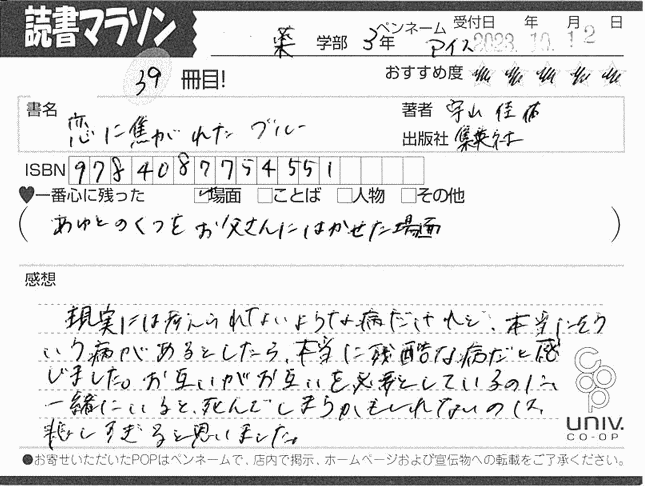 読書マラソン
薬 学部 3年 ペンネーム アイス 受付日 年 月 日
2023.10.12
39 冊目!
おすすめ度 ★★★★★
書名 恋に焦がれたブルー
著者 宇山佳佑
出版社 集英社
ISBN 9784087754551
♥一番心に残った ☑場面 □ことば □人物 □その他
(あゆとのくつをお父さんにはかせた場面)
感想
現実には考えられないような病だけれど、本当にそう
いう病があるとしたら、本当に残酷な病だと感
じました。お互いがお互いを必要としているのに、
一緒にいると、死んでしまうかもしれないのは、
悲しすぎると思いました。
coop
univ.
CO-OP
●お寄せいただいたPOPはペンネームで、店内で掲示、ホームページおよび宣伝物への転載をご了承ください。